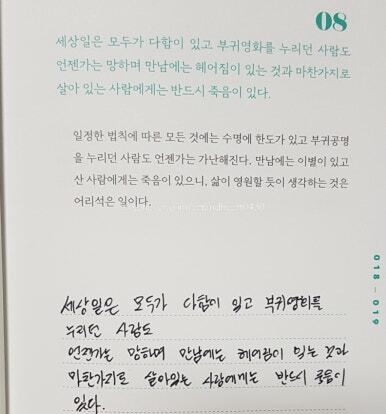 08
세상일은 모두가 다함이 있고 부귀영화를 누리던 사람도
언젠가는 망하며 만남에는 헤어짐이 있는 것과 마찬가지로
살아 있는 사람에게는 반드시 죽음이 있다.
일정한 법칙에 따른 모든 것에는 수명에 한도가 있고 부귀공명
을 누리던 사람도 언젠가는 가난해진다. 만남에는 이별이 있고
산 사람에게는 죽음이 있으니, 삶이 영원할 듯이 생각하는 것은
어리석은 일이다.
018 - 019
세상일은 모두가 다함이 있고 부귀영화를
누리던 사람도
언젠가는 망하며 만남에는 헤어짐이 있는 것과
마찬가지로 살아있는 사람에게는 반드시 죽음이
있다.